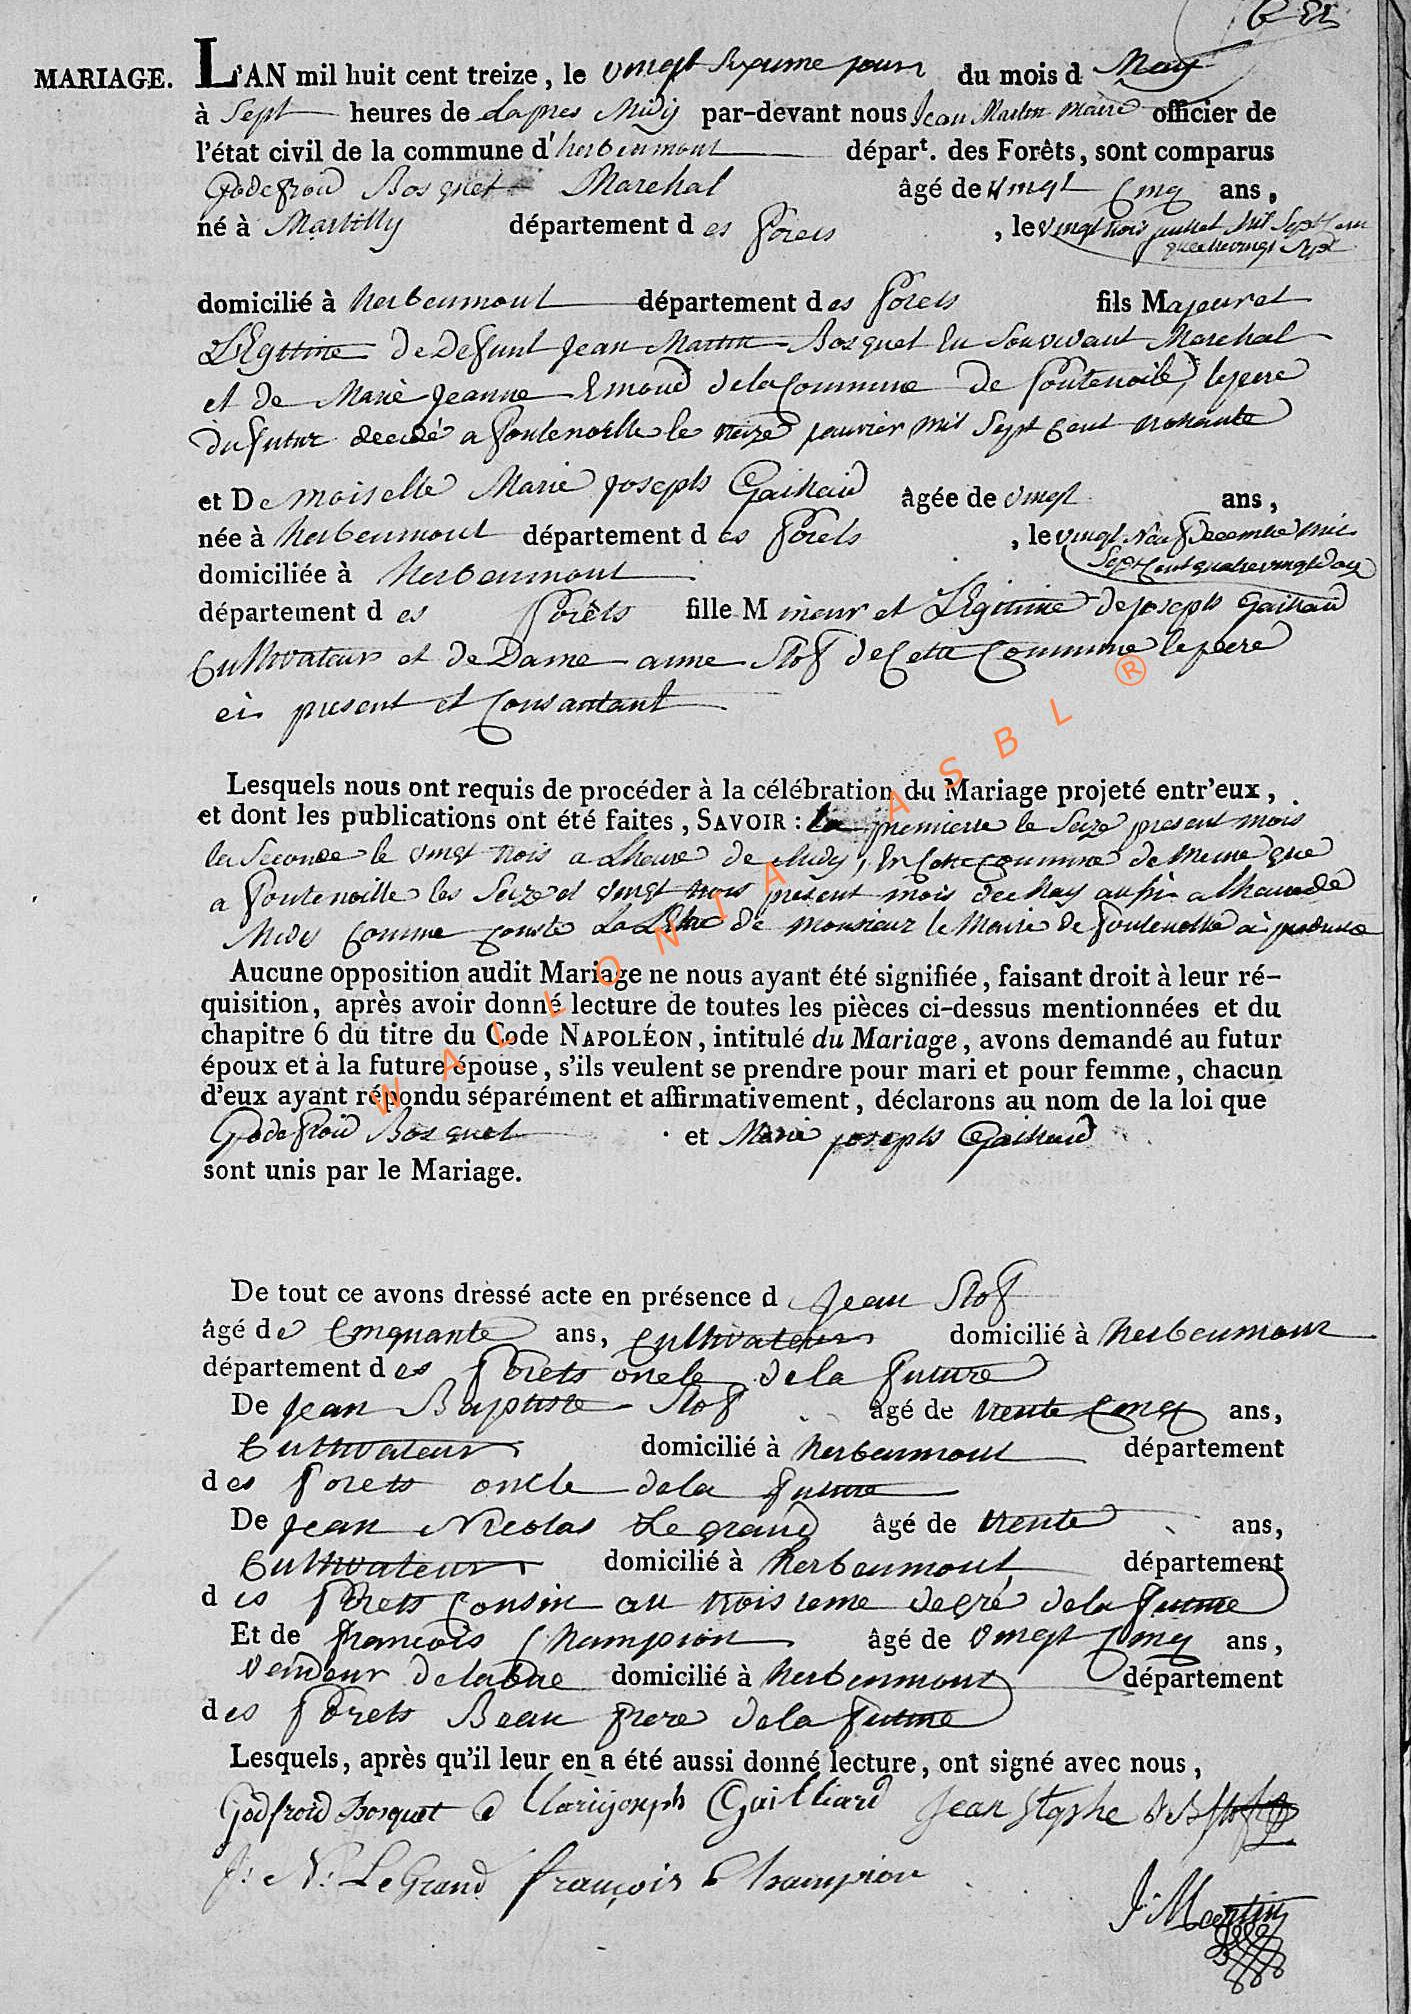 MARIAGE. L'AN mil huit cent treize, le vingt Sixieme jour du mois d May
à Sept heures de Lapres Midy par-devant nous Jean Martin Maire officier de
l'état civil de la commune d'herbeumont départ. des Forêts, sont comparus
Godefroid Bosquet Marchal âgé de vingt Cinq ans,
né à Martilly département d es Forets, le vingt trois juillet Mil Sept Cent
quatrevingt Sept
domicilié à herbeumont département des Forets fils Majeur et
LEgitime de Defunt Jean Martin Bosquet En Son vivant Marchal
et de Marie Jeanne Emond dela Commune de Fontenoille, le pere
du futur decedé a Fontenoille le treize janvier mil Sept Cent nonante
et Demoiselle Marie joseph Gaillard âgée de vingt ans,
née à herbeumont département d es Forets, le vingt Neuf Decembre mil
Sept Cent quatrevingt Douze
domiciliée à herbeumont
département d es Forêts fille Mineur et LEgitime de joseph Gaillard
Cultivateur et de Dame anne Slof de Cette Commune le peere
ci present et Consantant
Lesquels nous ont requis de procéder à la célébration du Mariage projeté entr'eux,
et dont les publications ont été faites, SAVOIR : La premierre le Seize present mois
la Seconde le vingt trois a Lheure de Midy, En Cette Commune de meme que
a Fontenoille les Seize et vingt trois present mois de May aussi a lheure de
Midy Comme Conste La Lettre de Monsieur le Maire de Fontenoille ci produite
Aucune opposition audit Mariage ne nous ayant été signifiée, faisant droit à leur ré-
quisition, après avoir donné lecture de toutes les pièces ci-dessus mentionnées et du
chapitre 6 du titre du Code NAPOLÉON, intitulé du Mariage, avons demandé au futur
époux et à la future épouse, s'ils veulent se prendre pour mari et pour femme, chacun
d'eux ayant répondu séparément et affirmativement, déclarons au nom de la loi que
Godefroid Bosquet et Marie joseph Gaillard
sont unis par le Mariage.
WALLONIA ASBL ®
De tout ce avons dressé acte en présence d Jean Slof
âgé de Cinquante ans, Cultivateur domicilié à herbeumont
département des Forets oncle dela future
De Jean Baptiste Slof âgé de trente Cinq ans,
Cultivateur domicilié à herbeumont département
des Forets oncle dela future
De jean Nicolas Legrand âgé de trente ans,
Cultivateur domicilié à herbeumont département
d es Forets Cousin au troisieme degré dela future
Et de françois Champion âgé de vingt Cinq ans,
domicilié à herbeumont département
des Forets Beau frere dela future
Lesquels, après qu'il leur en a été aussi donné lecture, ont signé avec nous,
Godfroid Bosquet Marijoseph Gailliard Jean J B Slof
J: N: Le Grand françois Champion
J: Martin